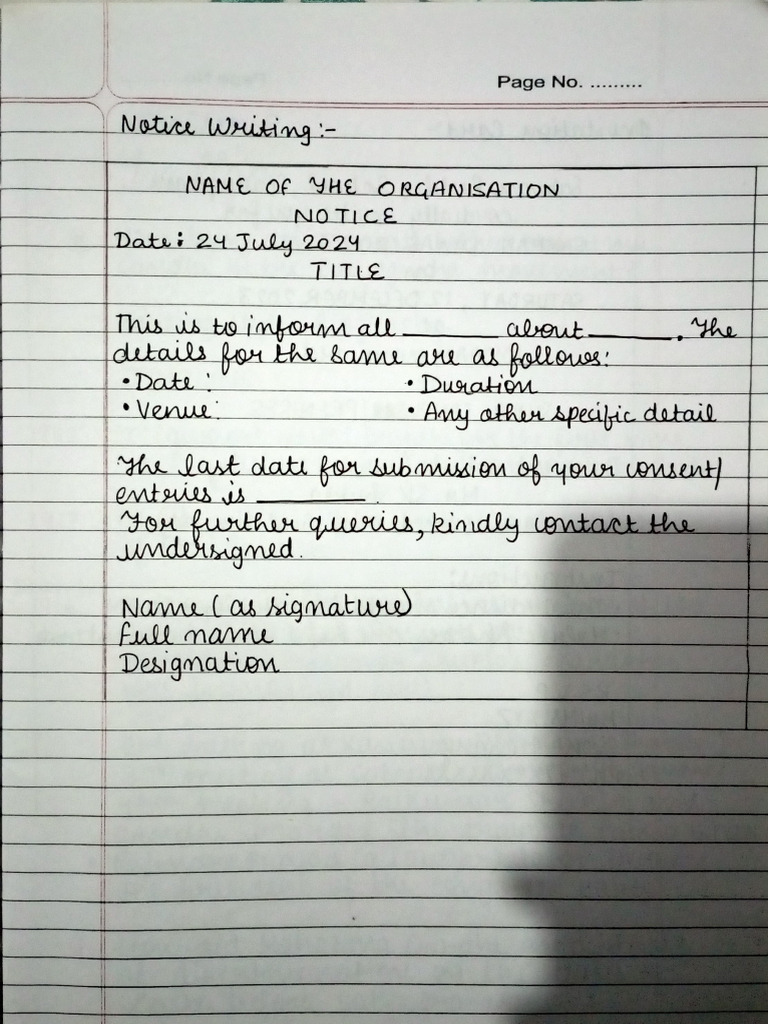 Page No. .........
Notice Writing:-
NAME OF THE ORGANISATION
NOTICE
Date: 24 July 2024
TITLE
This is to inform all ________ about ________. The
details for the same are as follows:
• Date : • Duration
• Venue: • Any other specific detail
The last date for submission of your consent/
entries is ________.
For further queries, kindly contact the
undersigned.
Name (as signature)
Full name
Designation